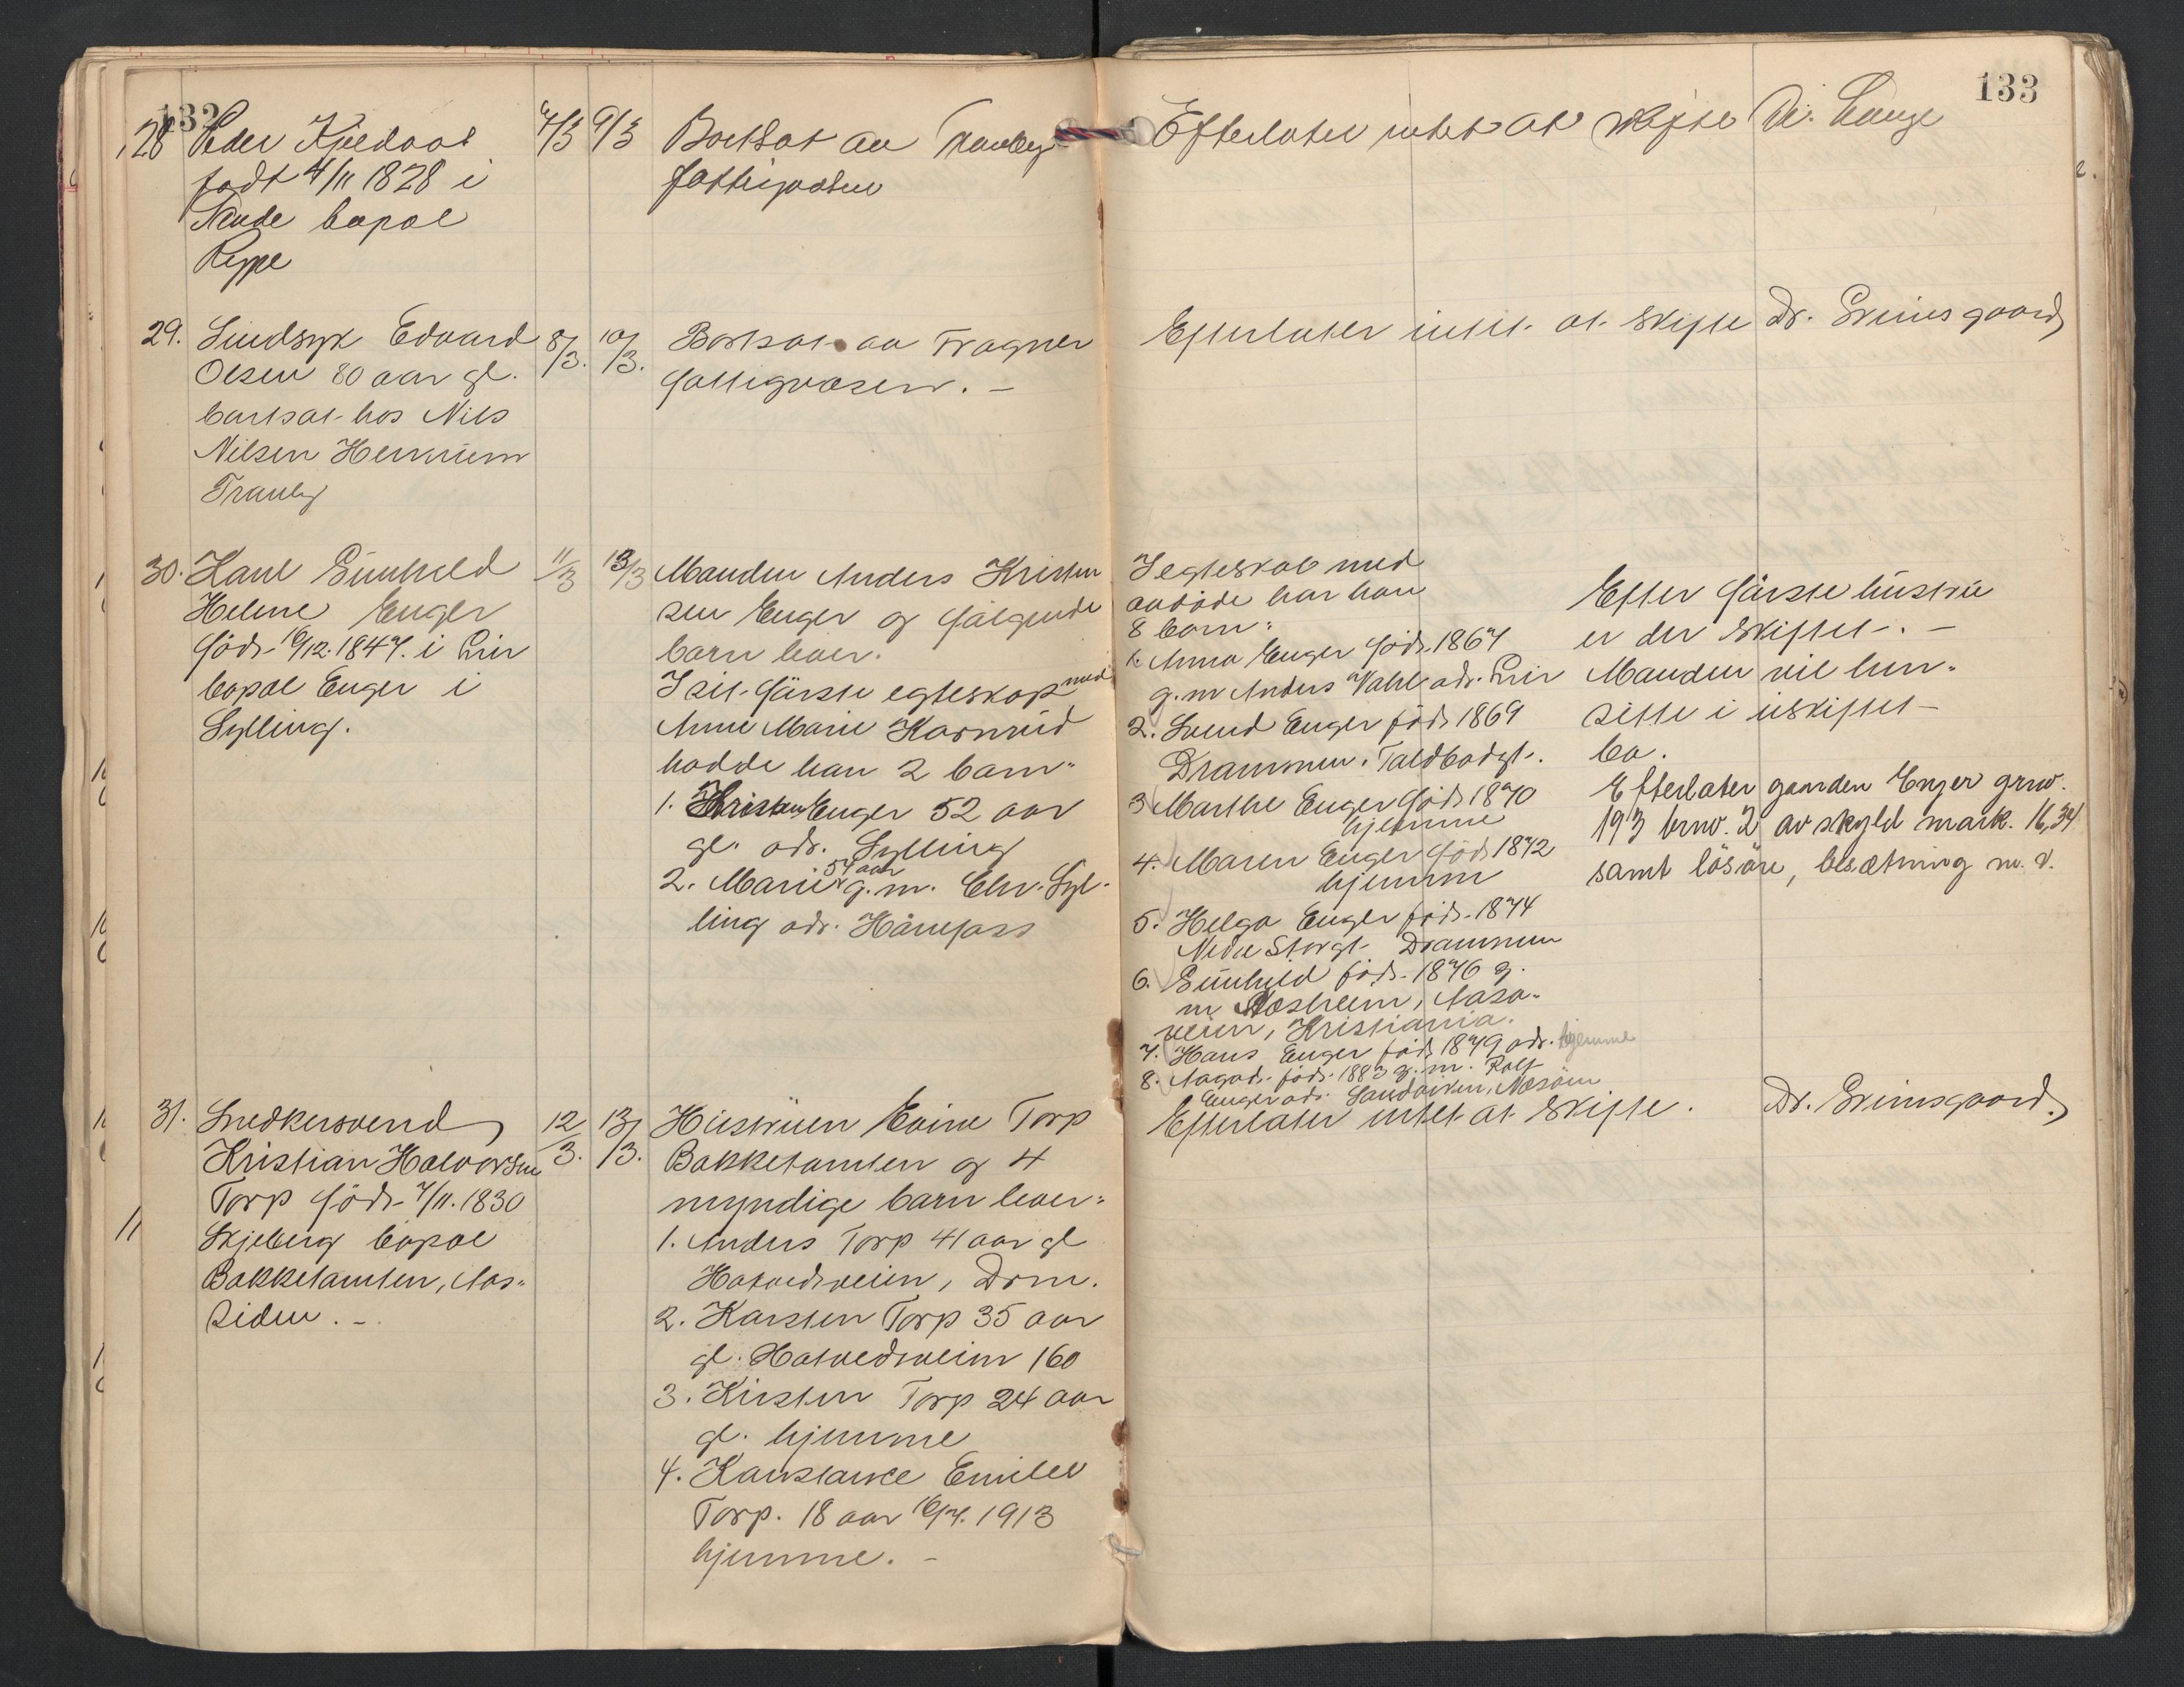 132
133
28 Peder Kjeldaas
født 4/11 1828 i
Sande bopæl
Reppe
4/3 9/3
Bortsat av Tranby
fattigvæsen
Efterlater intet at skifte Dr. Lange
29. Sindsyk Edvard
Olsen 80 aar gl.
bortsat hos Nils
Nilsen Hennum
Tranby
8/3. 10/3.
Bortsat av Fragner
fattigvæsen. –
Efterlater intet at skifte Dr. Sveinsgaard
30. Kone Gunhild
Helene Enger
født 16/12.1847. i Lier
bopæl Enger i
Sylling.
11/3 13/3
Manden Anders Kristen
sen Enger og følgende
barn lever.
I sit første egteskap med
Anne Marie Kornrud
hadde han 2 barn:
1. Kristen Enger 52 aar
gl. adr. Sylling
2. Marie 54 aar g.m. Chr. Syl-
ling adr. Hørnfoss
I egteskab med
avdøde har han
8 barn:
1. Anna Enger født 1867
g.m Anders Vahl adr. Lier
2. Svend Enger født 1869
Drammen. Toldbodgt.
3 Marthe Enger født 1870
hjemme
4. Maren Enger født 1872
hjemme
5. Helga Enger født 1874
Nedre Storgt. Drammen
6. Gunhild født 1876 g.
m Aasa-
veien, Kristiania.
7. Hans Enger født 1879 adr. hjemme
8. Aagot født 1883 g.m. Rolf
Enger adr. Sandviken, Næsøen
Efter første hustru
er der skiftet. –
Manden vil hen-
sitte i uskiftet
bo.
Efterlater gaarden Enger grnr.
193 brnr. 2 av skyld mark. 16,34
samt løsøre, besætning m. v.
31. Snedkersvend
Kristian Halvorsen
Torp født 7/11.1830
Skjeberg bopæl
Bakketomten, Aas-
siden. –
12/3. 13/3.
Hustruen Eline Torp
Bakketomten og 4
myndige barn lever:
1. Anders Torp 41 aar gl
Hotvedtveien, Drm.
2. Karsten Torp 35 aar
gl. Hotvedtveien 160
3. Kirsten Torp 24 aar
gl. hjemme
4. Konstance Emilie
Torp. 18 aar 16/7. 1913
hjemme. –
Efterlater intet at skifte. Dr. Sveinsgaard.